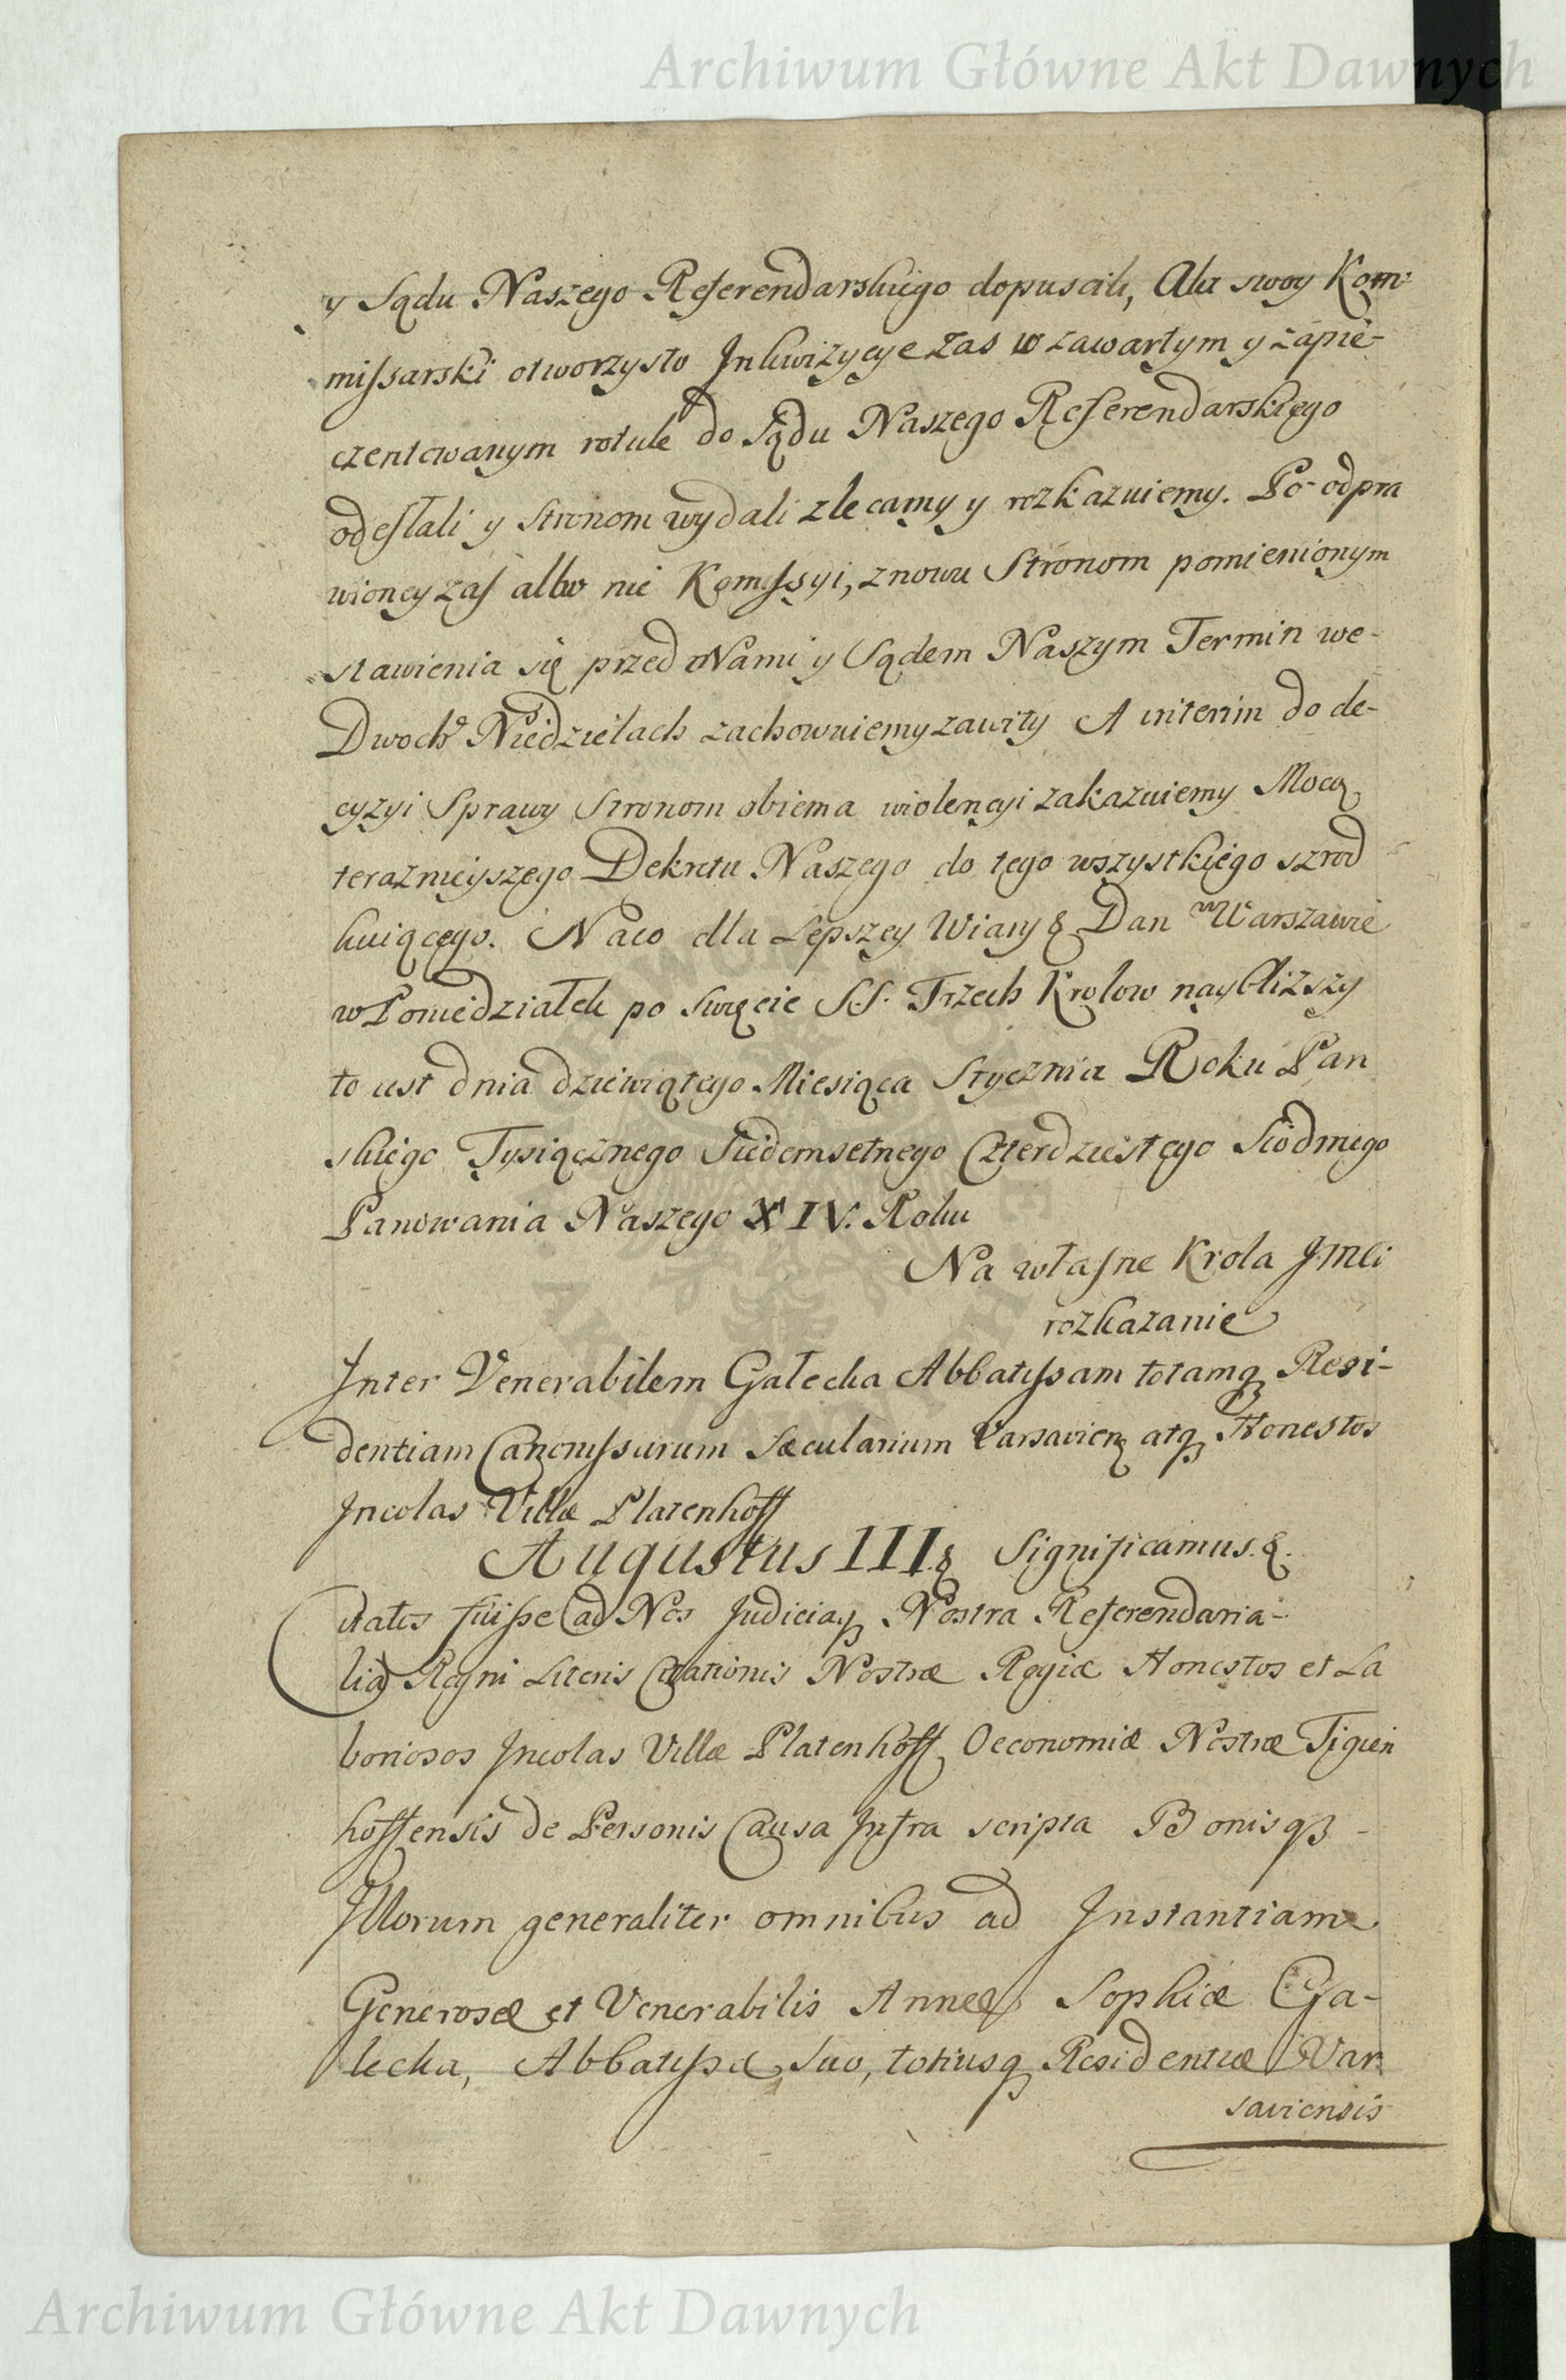 Archiwum Główne Akt Dawnych
y Sądu Naszego Referendarskiego dopuscili, Akt swoy Kom-
missarski otworzysto Jnkwizycye zas w zawartym y zapie-
czentowanym rotule do Sądu Naszego Referendarskiego
odeſłali y Stronom wydali zlecamy y rozkazuiemy. Po odpra
wioney zaſ albo nie Komiſsyi, znowu Stronom pomienionym
stawienia się przed Nami y Sądem Naszym Termin we-
Dwoch Niedzielach zachowuiemy zawity A interim do de-
cyzyi Sprawy Stronom obiema wiolencyi zakazuiemy Mocą
teraznieyszego Dekretu Naszego do tego wszystkiego szrod
kuiącego. Naco dla Lepszey Wiary & Dan w Warszawie
w Poniedziałek po Swięcie SS. Trzech Krolow naybliższy
to iest dnia dziewiątego Miesiąca Stycznia Roku Pan
skiego Tysiącznego Siedemsetnego Czterdziestego Siodmego
Panowania Naszego XIV. Roku
Na właſne Krola Jmci
rozkazanie
Inter Venerabilem Gałecka Abbatiſsam totamq Resi-
dentiam Canoniſsarum Sæcularium Varsavien atq Honestos
Jncolas Villæ Platenhoff
Augustus III & Significamus &.
Citatos fuiſse ad Nos Judiciaq Nostra Referendaria-
lia Regni Literis Citationis Nostræ Regiæ Honestos et La
boriosos Jncolas Villæ Platenhoff Oeconomiæ Nostræ Tigien
hoffensis de Personis Causa Jnfra scripta Bonisq -
Jllorum generaliter omnibus ad Jnstantiam
Generosæ et Venerabilis Annæ Sophiæ Ga-
lecka, Abbatiſsæ, Suo, totiusq Residentiæ Var
saviensis
Archiwum Główne Akt Dawnych